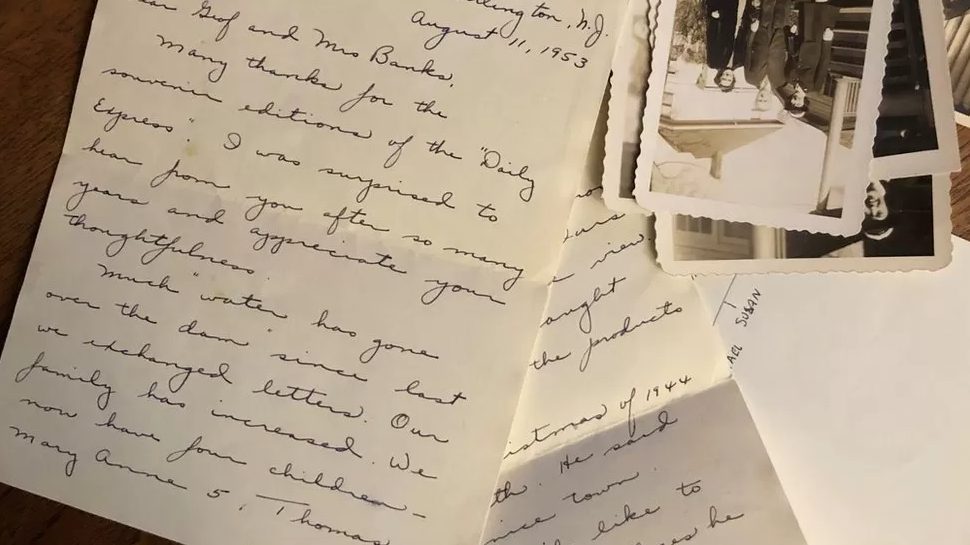 N.J.
August 11, 1953
Geof and Mrs Banks,
Many thanks for the
souvenir editions of the "Daily
Express". I was surprised to
hear from you after so many
years and appreciate your
thoughtfulness.
Much "water has gone
over the dam" since last
we exchanged letters. Our
family has increased. We
now have four children -
Mary Anne 5, Thomas
view
aught
the products
istmas of 1944
th. He said
nice town.
like to
he
SUSAN